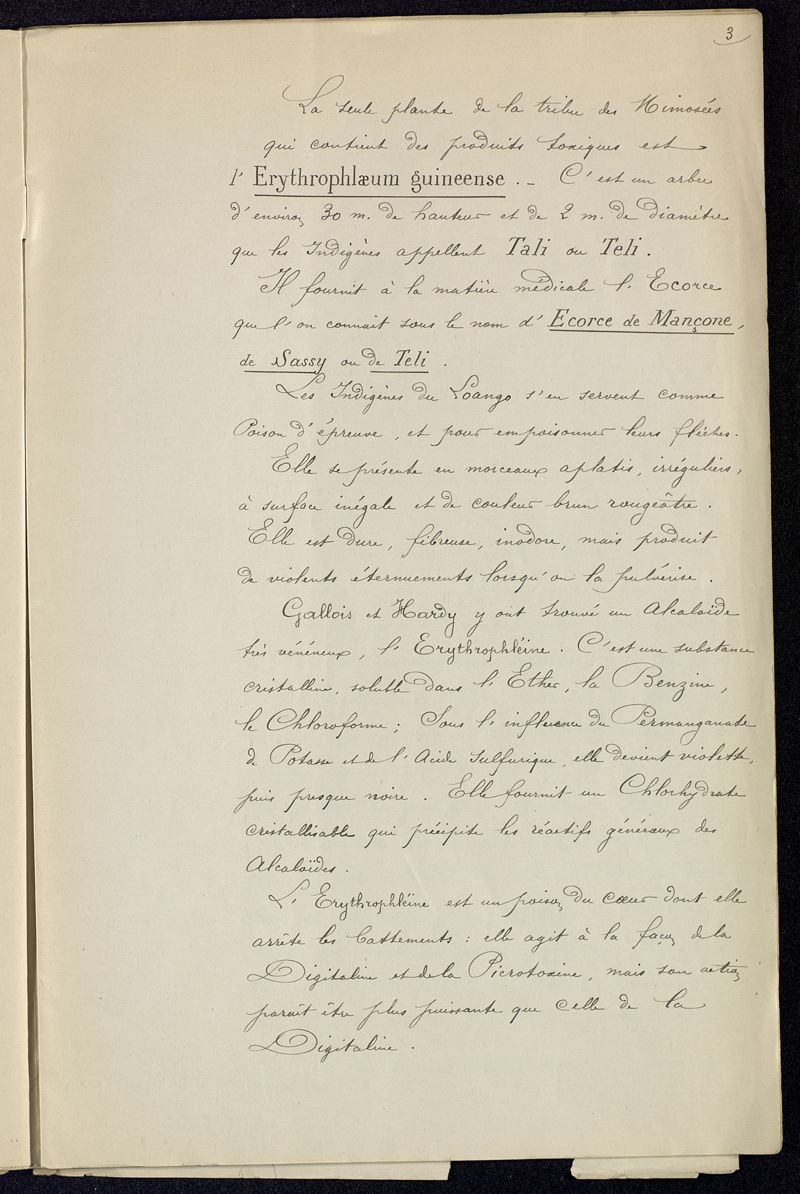 3
La seule plante de la tribu des Mimosées
qui contient des produits toxiques est
l' Erythrophlæum guineense . _ C'est un arbre
d'environ 30 m. de hauteur et de 2 m. de Diamètre
que les Indigènes appellent Tali ou Teli .
Il fournit à la matière médicale l' Ecorce
que l'on connait sous le nom d' Ecorce de Mançone,
de Sassy ou de Teli .
Les Indigènes du Loango s'en servent comme
Poison d'épreuve, et pour empoisonner leurs flèches.
Elle se présente en morceaux aplatis, irréguliers,
à surface inégale et de couleur brun rougeâtre .
Elle est dure, fibreuse, inodore, mais produit
de violents éternuements lorsqu'on la pulvérise .
Gallois et Hardy y ont trouvé un Alcaloïde
très vénéneux, l' Erythrophléine . C'est une substance
cristalline, soluble dans l' Ether, la Benzine,
le Chloroforme ; Sous l'influence du Permanganate
de Potasse et de l'Acide sulfurique, elle devient violette,
puis presque noire . Elle fournit un Chlorhydrate
cristallisable qui précipite les réactifs généraux des
Alcaloïdes .
L' Erythrophléine est un poison du cœur dont elle
arrête les battements : elle agit à la façon de la
Digitaline et de la Picrotoxine, mais son action
paraît être plus puissante que celle de la
Digitaline .